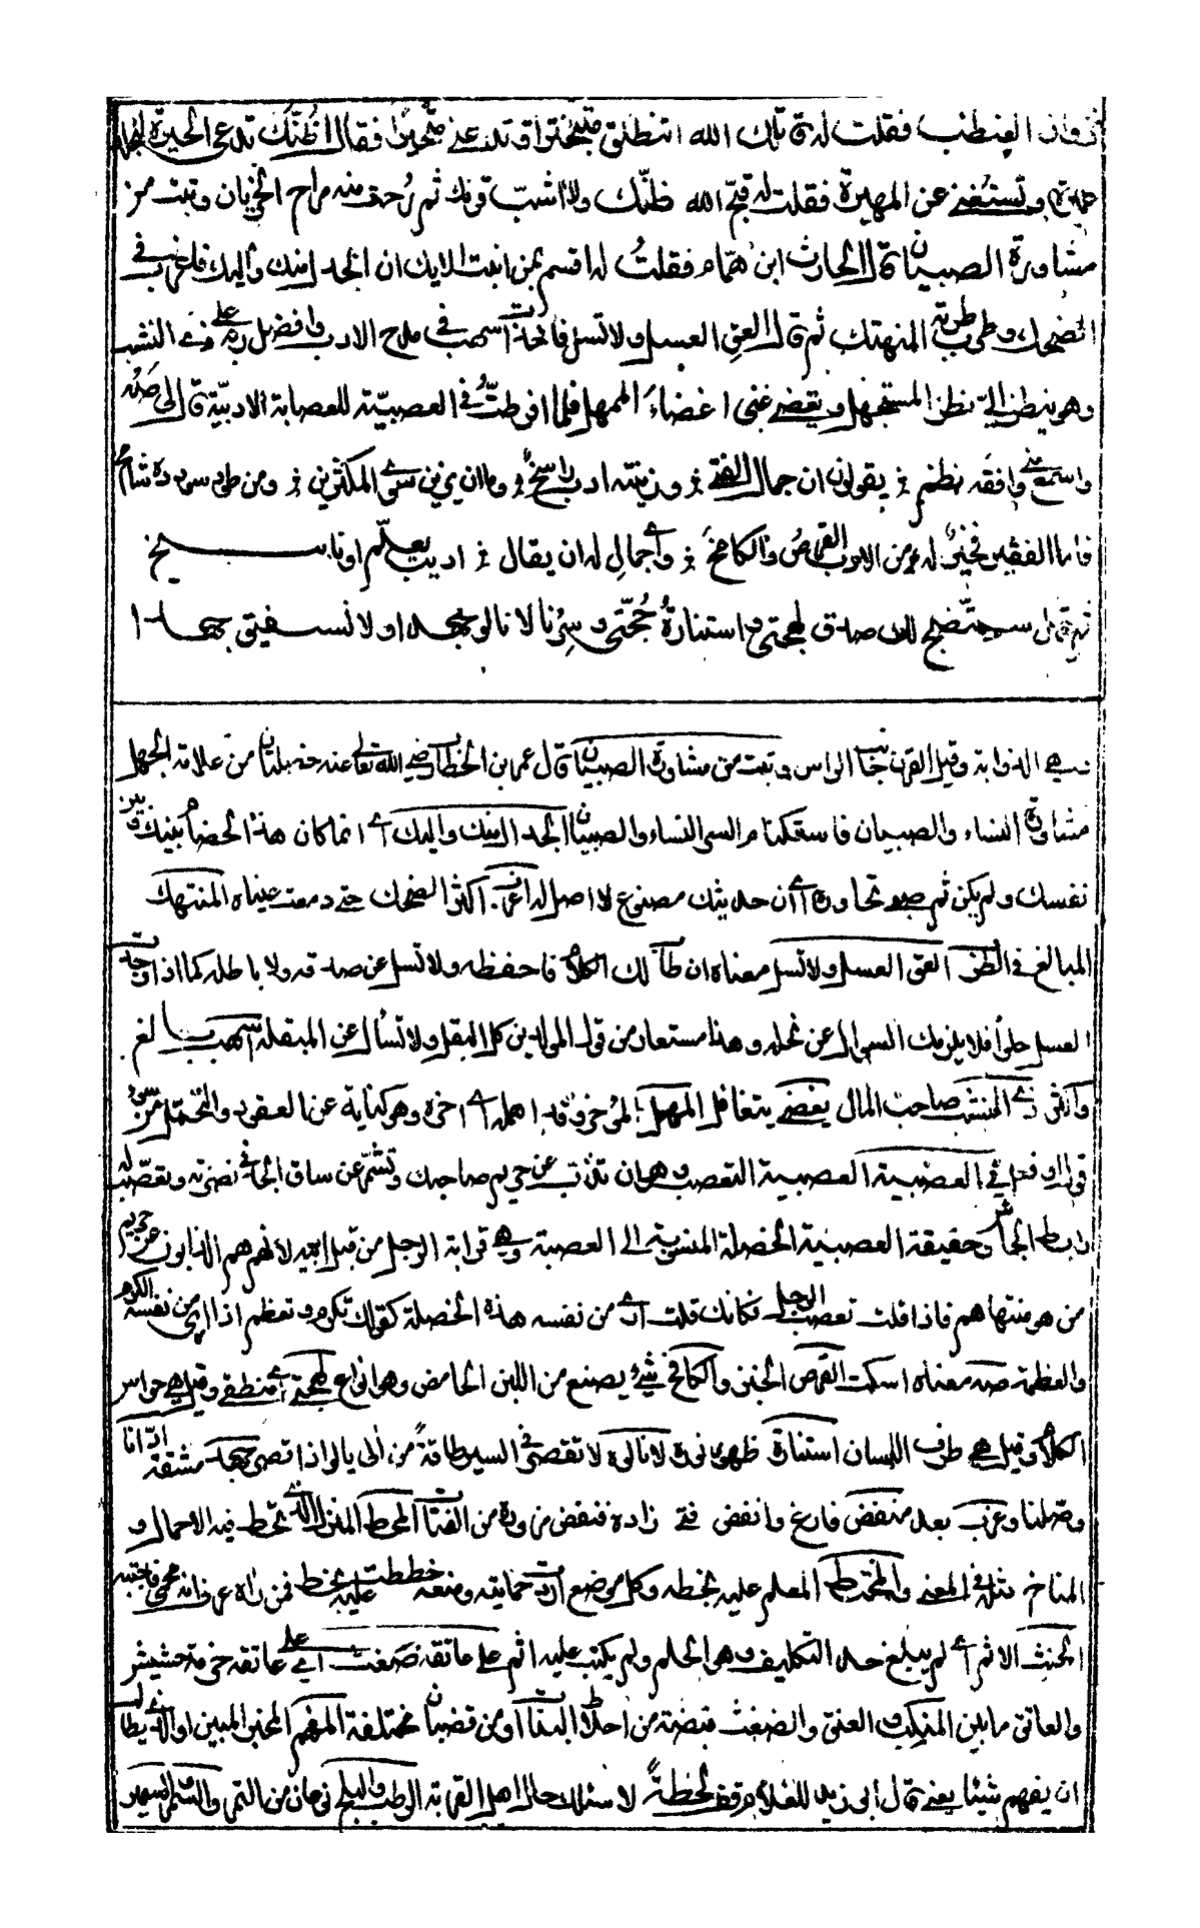 فقلت له قاتلك الله اتنطلق متبخترا وتدعني متحيرا فقال اظنك تدعى الحيرة
وتستغني عن المهيرة فقلت له قبح الله ظنك ولا اشب قرنك ثم رحت منه مراح الخزيان وتبت من
مشاورة الصبيان قال الحارث ابن همام فقلت له اقسم بمن انبت الايك ان الجدل منك واليك فاغرب في
الضحك وطرب طربة المنهتك ثم قال العق العسل ولا تسل فاخذت اسهب في مدح الادب وافضل ربه على ذي النشب
وهو ينظر الي نظر المستجهل ويغضي عني اغضاء الممهل فلما افرطت في العصبية للعصابة الادبية قال لي صه
واسمع مني وافقه نظم يقولون ان جمال الفتى وزينته ادب راسخ وما ان يزين سوى المكثرين ومن طود سودده شامخ
فاما الفقير فخير له من الادب القرص والكامخ واي جمال له ان يقال اديب يعلم او ناسخ
ثم قال سيتضح لك صدق لهجتي واستنارة حجتي وسرنا لا نالو جهدا ولا نستفيق جهدا
وهي الذوابة وقيل القرن جانب الراس وتبت من مشاورة الصبيان قال عمر بن الخطاب رضي الله تعالى عنه خصلتان من علامة الجهل
مشاورة النساء والصبيان فاستكتام السر النساء والصبيان الجدل منك واليك اي انما كان هذا الخصام بينك وبين
نفسك ولم يكن ثم صبي تحاوره اي ان حديثك مصنوع لا اصل له اغرب اكثر الضحك حتى دمعت عيناه المنتهك
المبالغ في الطرب العق العسل ولا تسل معناه ان طاب لك الكلام فاحفظه ولا تسل عن صدقه ولا باطله كما اذا وجدت
العسل حلوا فلا يلزمك السوال عن نحله وهذا مستعار من قول المولدين كل البقل ولا تسأل عن المبقلة اسهب بالغ
واكثر ذي النشب صاحب المال يغضي يتغافل الممهل المؤخر وقد امهله اي اخره وهو كناية عن العفو والتحمل من سوء
قوله العصبية العصبية التعصب وهو ان تذب عن حريم صاحبك وتشمر عن ساق الجد في نصرته وتعصب له
رابط الجاش وحقيقة العصبية الخصلة المنسوبة الى العصبة وهي قرابة الرجل من قبل ابيه لانهم هم الذابون عن حريم
من هو منتهاهم فاذا قلت تعصب الرجل فكانك قلت ارى من نفسه هذه الخصلة كقولك تكرم وتعظم اذا ارى من نفسه الكرم
والعظمة صه معناه اسكت القرص الخبز والكامخ شيء يصنع من اللبن الحامض وهو انواع لهجتي اي منطقي وقيل هي حواس
الكلام وقيل هي طرف اللسان استنارة ظهور نوره لا نالو لا نقصر في السير طاقة من الى يالو اذا قصر جهدا مشقة ادانا
وصلنا وغرب بعد منفض فارغ وانفض فتى زاده فنفض مزوده من الفتات المحط المنزل الذي تحط فيه الاحمال و
المناخ مثله في المعنى والمختط المعلم عليه بخطه وكل موضع اردت حمايته ومنعه خططت عليه بخط فمن راه عرف انه محمي فاجتنبه
الحنث الاثم اي لم يبلغ حد التكليف وهو الحلم ولم يكتب عليه اثم على عاتقه ضغث اي على عاتقه حزمة حشيش
والعاتق ما بين المنكب والعنق والضغث قبضة من اخلاط النبات او من قضبان مختلفة المفهم المخبر المبين او الذي يطلب
ان يفهم شيئا يعني قال ابي زيد للغلام موقف لحظة لا سئلك حال اهل القرية الرطب والبلح نوعان من التمر والسمر السمير